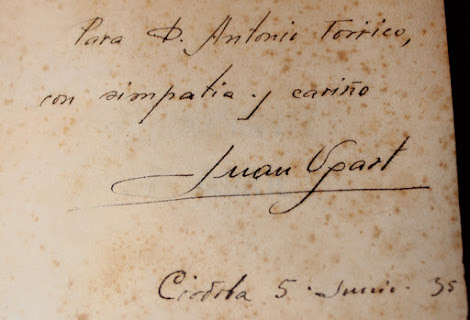 Para D. Antonio Torrico,
con simpatia y cariño
Juan Ugart
Córdoba 5 · Junio · 35